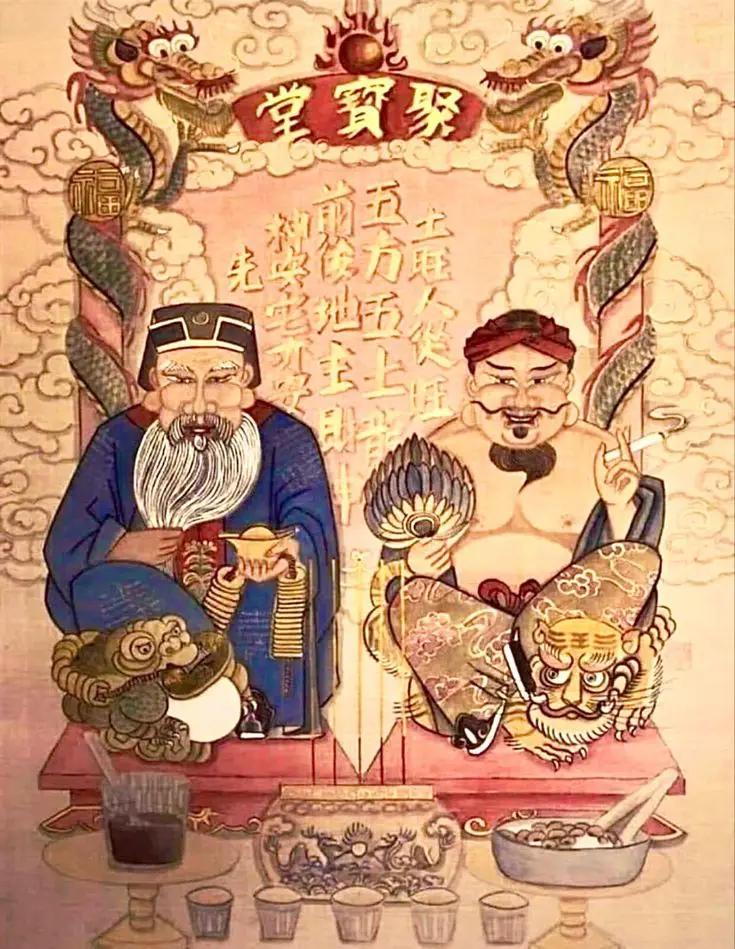 聚寶堂
福
福
土旺人從旺
五方五土龍
前後地主財
神安宅亦安
先